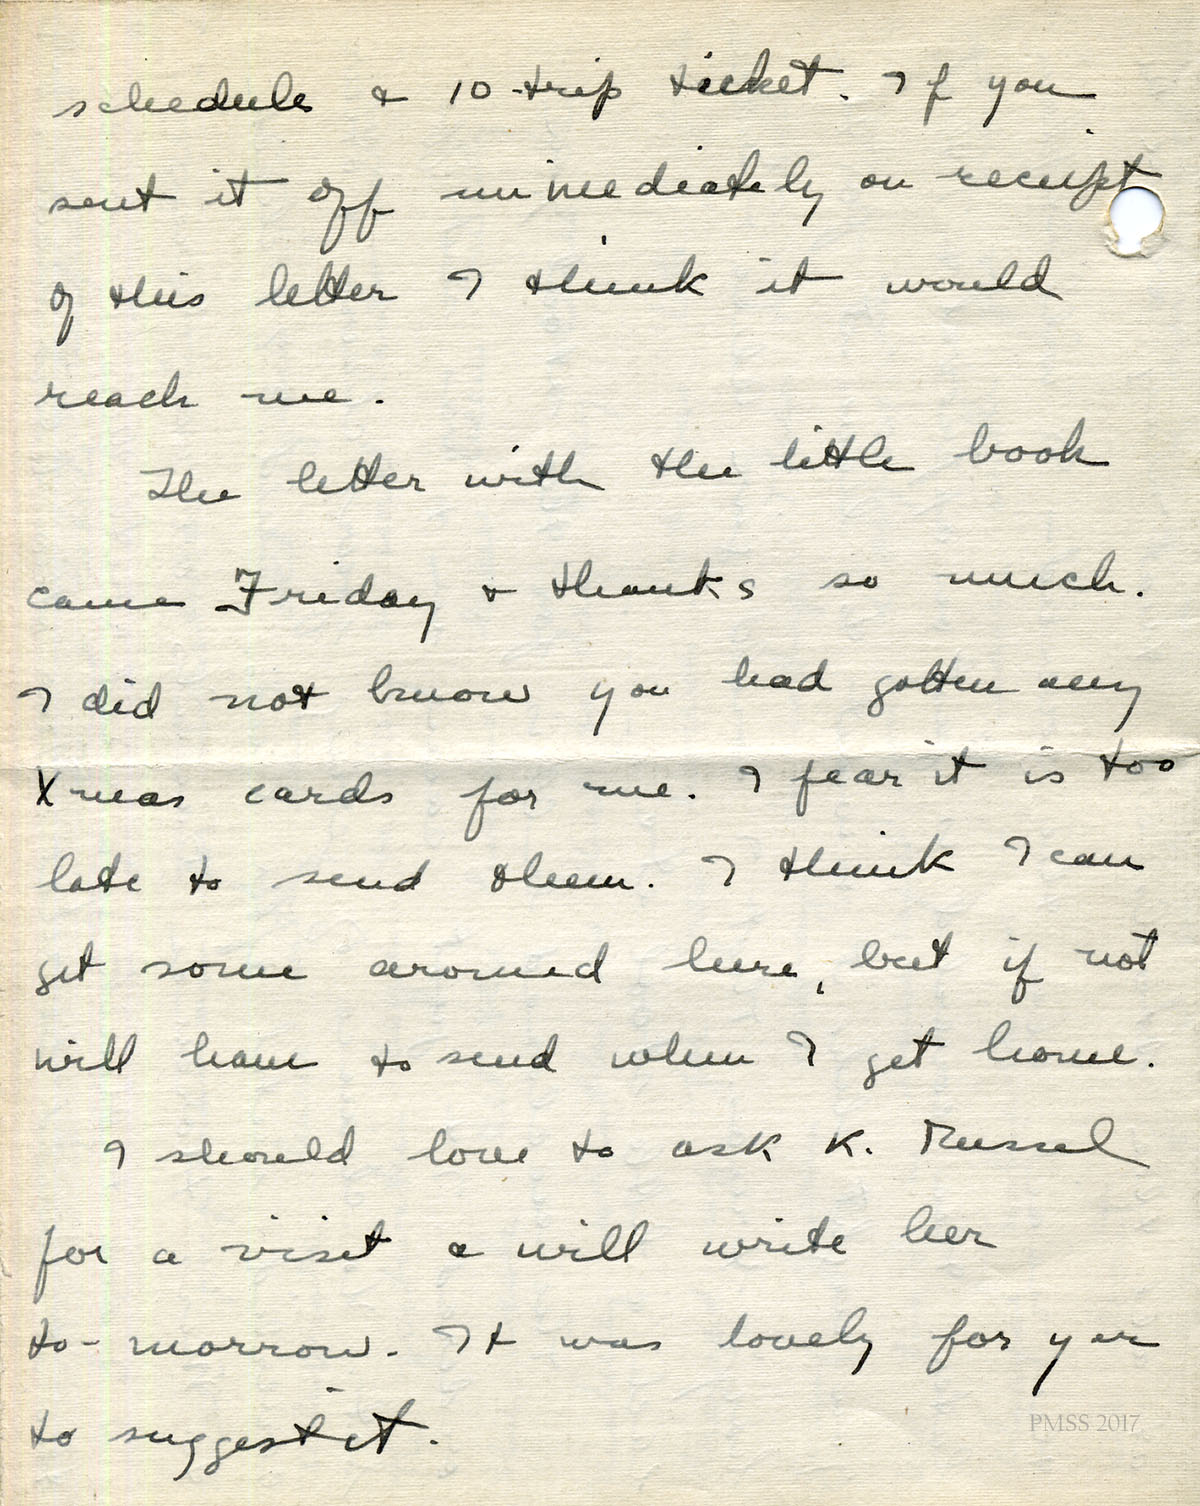 schedule & 10-trip ticket. If you
sent it off immediately on receipt
of this letter I think it would
reach me.
The letter with the little book
came Friday & thanks so much.
I did not know you had gotten any
Xmas cards for me. I fear it is too
late to send them. I think I can
get some around here, but if not
will have to send when I get home.
I should love to ask K. Russel
for a visit & will write her
to-morrow. It was lovely for you
to suggest it.
PMSS 2017